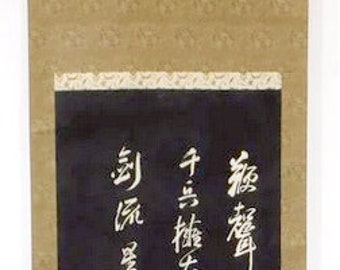 鞭聲
千兵擁大
劍流星